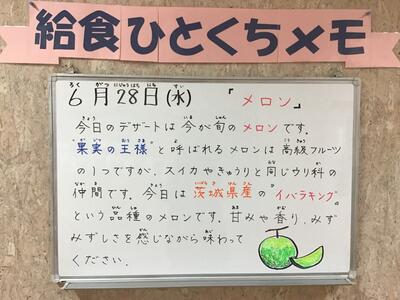 給食ひとくちメモ
6月28日(水) 「メロン」
今日のデザートは今が旬のメロンです。
"果実の王様"と呼ばれるメロンは高級フルーツ
の1つですが、スイカやきゅうりと同じウリ科の
仲間です。今日は茨城県産の『イバラキング』
という品種のメロンです。甘みや香り、みず
みずしさを感じながら味わって
ください。